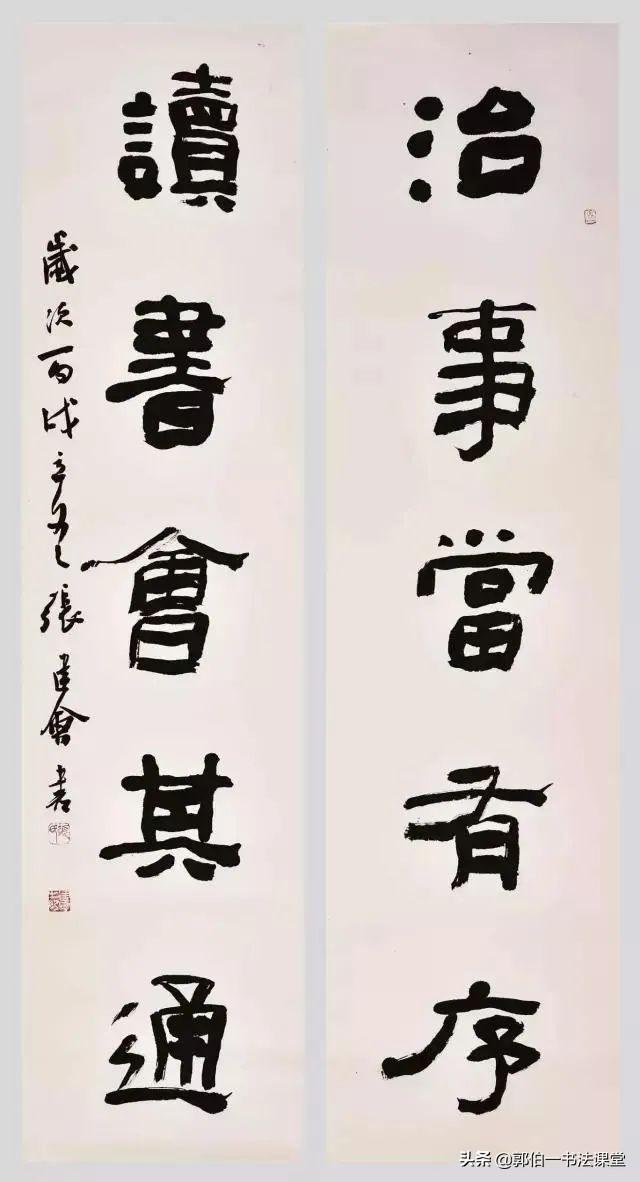 治事當有序
讀書會其通
歲次丙戌 張建會書
头条 @郭伯一书法课堂